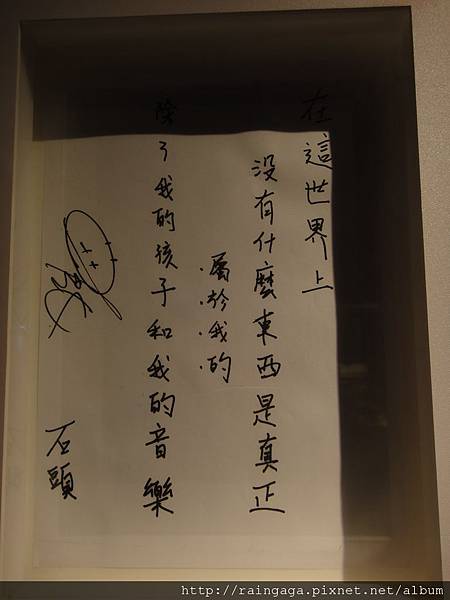 在這世界上
沒有什麼東西是真正
.屬.於.我.的
除了我的孩子和我的音樂
石頭
http://raingaga.pixnet.net/album